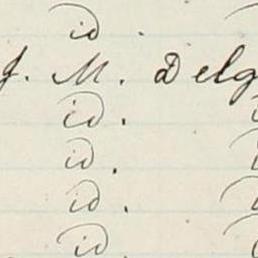 id
J. M. Delg
id.
id.
id.
id.